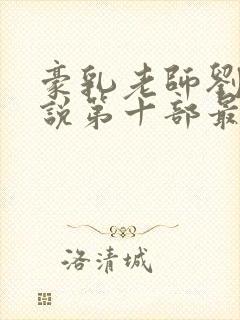 豪乳老師劉
說第十部最
洛清城